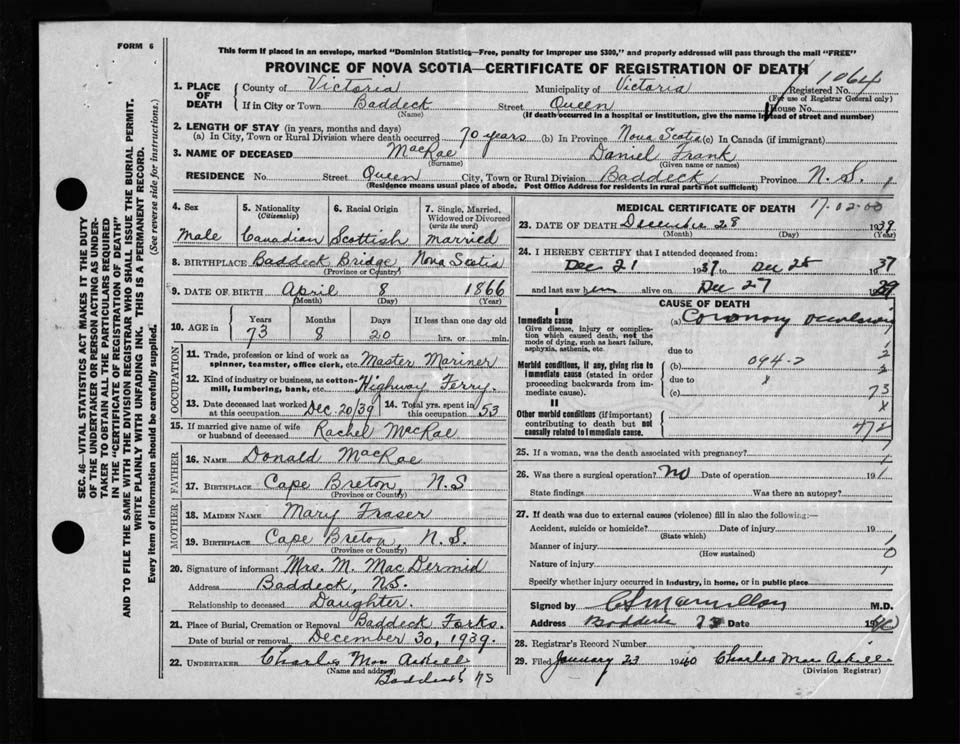 FORM 6
This form if placed in an envelope, marked "Dominion Statistics—Free, penalty for improper use $300," and properly addressed will pass through the mail "FREE"
PROVINCE OF NOVA SCOTIA—CERTIFICATE OF REGISTRATION OF DEATH
1064
Registered No.
(For use of Registrar General only)
1. PLACE OF DEATH
County of Victoria Municipality of Victoria
If in City or Town Baddeck Street Queen House No.
(Name) (If death occurred in a hospital or institution, give the name instead of street and number)
2. LENGTH OF STAY (in years, months and days)
(a) In City, Town or Rural Division where death occurred 70 years (b) In Province Nova Scotia (c) In Canada (if immigrant)
3. NAME OF DECEASED MacRae Daniel Frank
(Surname) (Given name or names)
RESIDENCE No. Street Queen City, Town or Rural Division Baddeck Province N.S.
(Residence means usual place of abode. Post Office Address for residents in rural parts not sufficient)
4. Sex
Male
5. Nationality
(Citizenship)
Canadian
6. Racial Origin
Scottish
7. Single, Married, Widowed or Divorced
(write the word)
married
8. BIRTHPLACE Baddeck Bridge, Nova Scotia
(Province or Country)
9. DATE OF BIRTH April 8 1866
(Month) (Day) (Year)
10. AGE in
Years Months Days If less than one day old
73 8 20 hrs. or min.
OCCUPATION
11. Trade, profession or kind of work as spinner, teamster, office clerk, etc. Master Mariner
12. Kind of industry or business, as cotton-mill, lumbering, bank, etc. Highway Ferry.
13. Date deceased last worked at this occupation Dec. 20/39 14. Total yrs. spent in this occupation 53
15. If married give name of wife or husband of deceased Rachel MacRae
FATHER
16. NAME Donald MacRae
17. BIRTHPLACE Cape Breton, N.S
(Province or Country)
MOTHER
18. MAIDEN NAME Mary Fraser
19. BIRTHPLACE Cape Breton, N.S.
(Province or Country)
20. Signature of informant Mrs. M. MacDermid
Address Baddeck, N.S.
Relationship to deceased Daughter.
21. Place of Burial, Cremation or Removal Baddeck Forks.
Date of burial or removal December 30, 1939.
22. UNDERTAKER Charles Mac Askill
(Name and address)
Baddeck NS
MEDICAL CERTIFICATE OF DEATH
23. DATE OF DEATH December 28 1939
(Month) (Day) (Year)
24. I HEREBY CERTIFY that I attended deceased from:
Dec 21 to Dec 28
and last saw him alive on Dec 27
CAUSE OF DEATH
I
Immediate cause
Give disease, injury or complication which caused death, not the mode of dying, such as heart failure, asphyxia, asthenia, etc.
(a) Coronary occlusion
due to
Morbid conditions, if any, giving rise to immediate cause (stated in order proceeding backwards from immediate cause).
(b) 094-2
due to 8
(c) 73
II
Other morbid conditions (if important) contributing to death but not causally related to immediate cause.
472
25. If a woman, was the death associated with pregnancy?
26. Was there a surgical operation? No Date of operation 19
State findings Was there an autopsy?
27. If death was due to external causes (violence) fill in also the following:—
Accident, suicide or homicide? Date of injury 19
(State which)
Manner of injury
(How sustained)
Nature of injury
Specify whether injury occurred in industry, in home, or in public place
Signed by M.D.
Address Baddeck Date
28. Registrar's Record Number
29. Filed January 23 1940 Charles Mac Askill
(Division Registrar)
SEC. 46—VITAL STATISTICS ACT MAKES IT THE DUTY
OF THE UNDERTAKER OR PERSON ACTING AS UNDER-
TAKER TO OBTAIN ALL THE PARTICULARS REQUIRED
IN THE "CERTIFICATE OF REGISTRATION OF DEATH"
AND TO FILE THE SAME WITH THE DIVISION REGISTRAR WHO SHALL ISSUE THE BURIAL PERMIT.
WRITE PLAINLY WITH UNFADING INK. THIS IS A PERMANENT RECORD.
Every item of information should be carefully supplied. (See reverse side for instructions.)